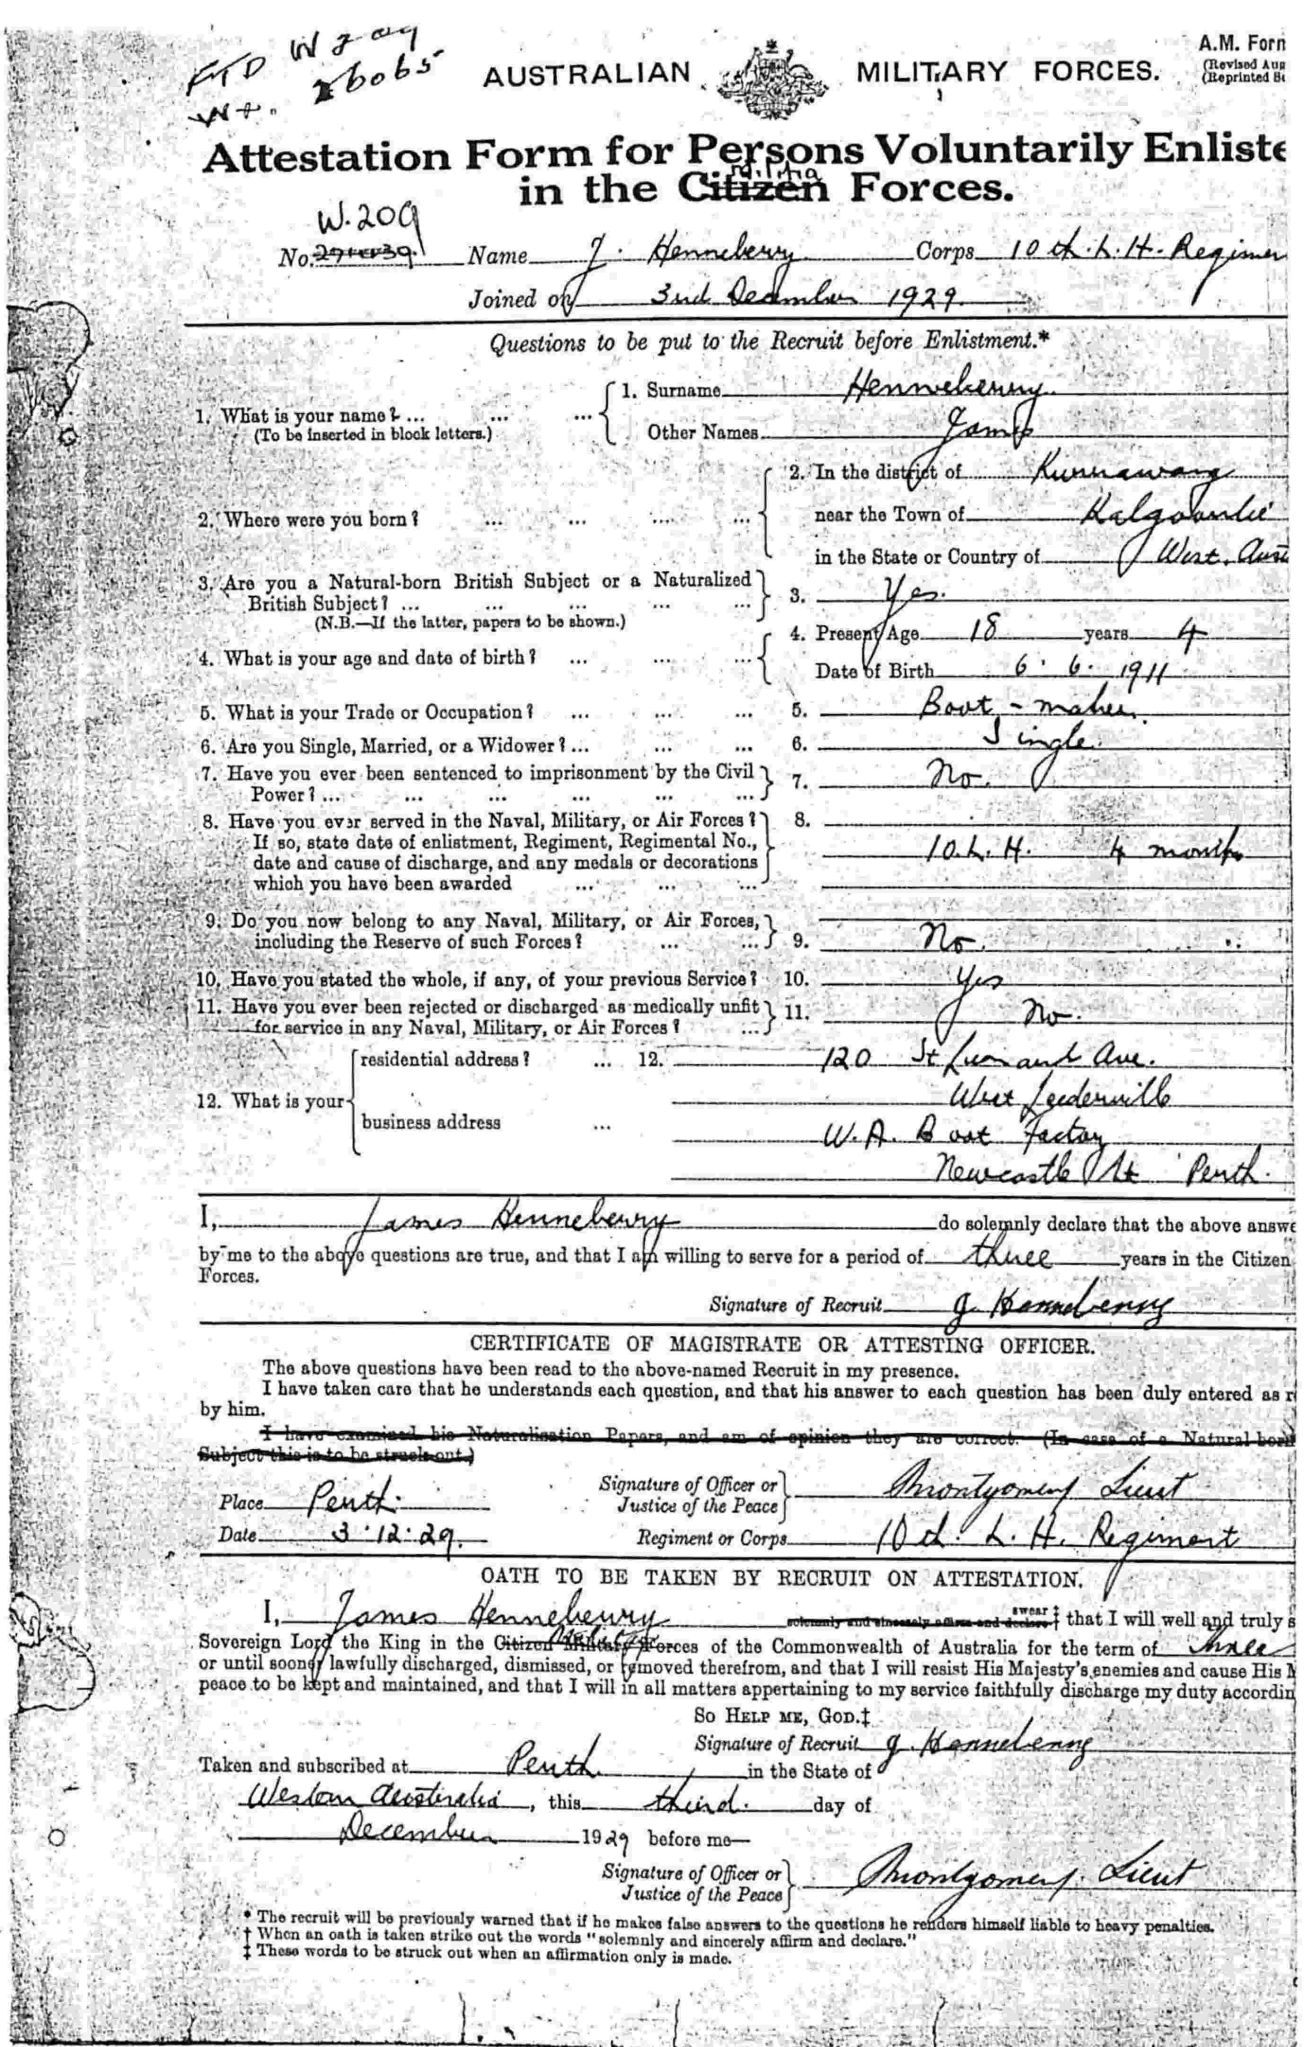 FTD W209
W+. X6065
AUSTRALIAN MILITARY FORCES.
A.M. Form
(Revised Aug
(Reprinted Se
Attestation Form for Persons Voluntarily Enliste
Militia
in the Citizen Forces.
W.209
No. Name J. Henneberry Corps 10th. L. H. Regimen
Joined on 3rd December 1929.
Questions to be put to the Recruit before Enlistment.*
1. What is your name? ... ... ... 1. Surname Henneberry.
(To be inserted in block letters.) Other Names James
2. In the district of Kunnawang
2. Where were you born? ... ... ... ... near the Town of Kalgoorlie
in the State or Country of West. Aust
3. Are you a Natural-born British Subject or a Naturalized
British Subject? ... ... ... ... ... 3. Yes.
(N.B.—If the latter, papers to be shown.)
4. Present Age 18 years 4
4. What is your age and date of birth? ... ... ...
Date of Birth 6. 6. 1911
5. What is your Trade or Occupation? ... ... ... 5. Boot-maker.
6. Are you Single, Married, or a Widower? ... ... ... 6. Single.
7. Have you ever been sentenced to imprisonment by the Civil
Power? ... ... ... ... ... ... 7. No.
8. Have you ever served in the Naval, Military, or Air Forces? 8.
If so, state date of enlistment, Regiment, Regimental No.,
date and cause of discharge, and any medals or decorations 10. L. H. 4 months
which you have been awarded ... ... ...
9. Do you now belong to any Naval, Military, or Air Forces,
including the Reserve of such Forces? ... ... 9. No.
10. Have you stated the whole, if any, of your previous Service? 10. Yes
11. Have you ever been rejected or discharged as medically unfit
for service in any Naval, Military, or Air Forces? ... 11. No.
residential address? ... 12. 120 St Leonard Ave.
West Leederville
12. What is your
business address ... W.A. Boot Factory
Newcastle St Perth.
I, James Henneberry do solemnly declare that the above answe
by me to the above questions are true, and that I am willing to serve for a period of three years in the Citizen
Forces.
Signature of Recruit J. Henneberry
CERTIFICATE OF MAGISTRATE OR ATTESTING OFFICER.
The above questions have been read to the above-named Recruit in my presence.
I have taken care that he understands each question, and that his answer to each question has been duly entered as r
by him.
I have examined his Naturalisation Papers, and am of opinion they are correct. (In case of a Natural-born
Subject this is to be struck out.)
Signature of Officer or
Justice of the Peace Montgomery Lieut
Place Perth.
Date 3.12.29. Regiment or Corps 10th. L. H. Regiment
OATH TO BE TAKEN BY RECRUIT ON ATTESTATION.
swear ‡
I, James Henneberry solemnly and sincerely affirm and declare † that I will well and truly s
Sovereign Lord the King in the Citizen Military Forces of the Commonwealth of Australia for the term of three
or until sooner lawfully discharged, dismissed, or removed therefrom, and that I will resist His Majesty's enemies and cause His M
peace to be kept and maintained, and that I will in all matters appertaining to my service faithfully discharge my duty accordin
SO HELP ME, GOD.‡
Signature of Recruit J. Henneberry
Taken and subscribed at Perth in the State of
Western Australia, this third. day of
December 1929 before me—
Signature of Officer or
Justice of the Peace Montgomery. Lieut
* The recruit will be previously warned that if he makes false answers to the questions he renders himself liable to heavy penalties.
† When an oath is taken strike out the words "solemnly and sincerely affirm and declare."
‡ These words to be struck out when an affirmation only is made.